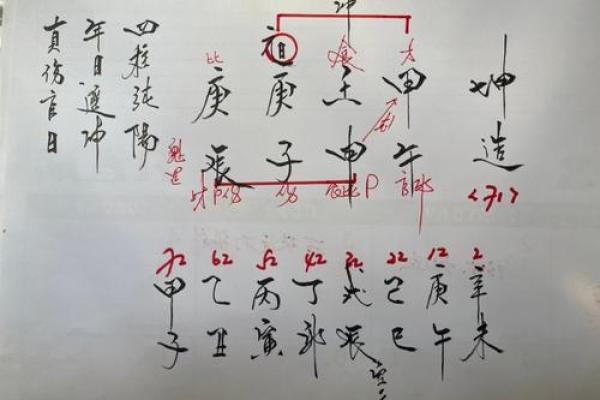 冲
坤造
<71>
才 食 日 比
甲 壬 庚 庚
午 申 子 辰
魁罡
四柱純陽
年日逢冲
真伤官日
72 62 52 42 32 22 12 2
甲 乙 丙 丁 戊 己 庚 辛
子 丑 寅 卯 辰 巳 午 未